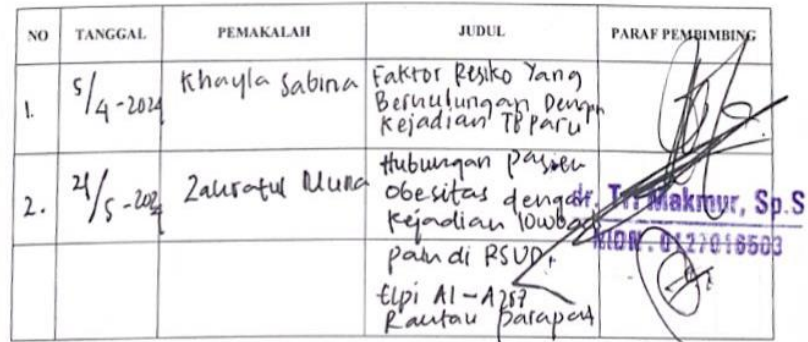 NO TANGGAL PEMAKALAH JUDUL PARAF PEMBIMBING
1. 5/4-2024 Khayla Sabina Faktor Resiko Yang
Berhubungan Dengan
Kejadian TB Paru
2. 21/5-2024 Zauratul Muna Hubungan Pasien
Obesitas dengan
Kejadian lowback
pain di RSUD.
Elpi Al-Aziz
Rantau Parapat
dr. Tri Makmur, Sp.S
NIDN. 0127016503